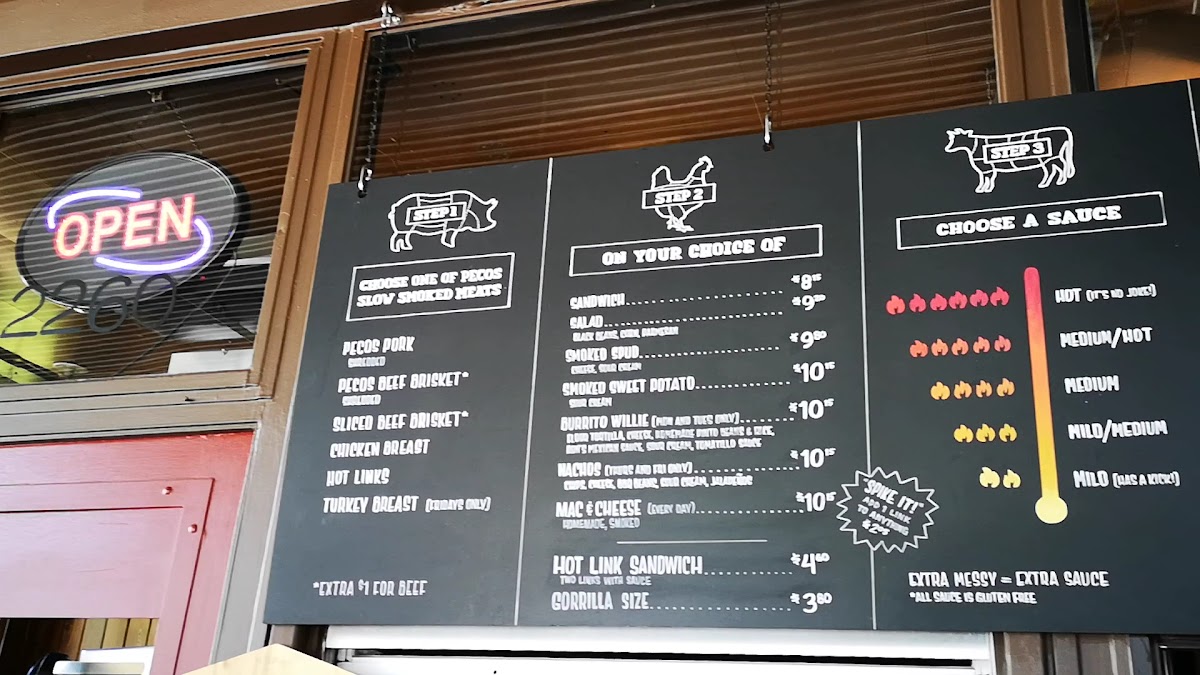 OPEN
2260
STEP 1
CHOOSE ONE OF PECOS
SLOW SMOKED MEATS
PECOS PORK
SHREDDED
PECOS BEEF BRISKET*
SHREDDED
SLICED BEEF BRISKET*
CHICKEN BREAST
HOT LINKS
TURKEY BREAST (FRIDAYS ONLY)
*EXTRA $1 FOR BEEF
STEP 2
ON YOUR CHOICE OF
SANDWICH
SALAD
BLACK BEANS, CORN, PARMESAN
SMOKED SPUD $9.80
CHEESE, SOUR CREAM
SMOKED SWEET POTATO $10.15
SOUR CREAM
BURRITO WILLIE (MON AND TUES ONLY) $10.15
FLOUR TORTILLA, CHEESE, HOMEMADE PINTO BEANS & RICE,
RON'S MEXICAN SAUCE, SOUR CREAM, TOMATILLO SAUCE
NACHOS (THURS AND FRI ONLY) $10.15
CHIPS, CHEESE, BBQ BEANS, SOUR CREAM, JALAPEÑOS
MAC & CHEESE (EVERY DAY) $10.15
HOMEMADE, SMOKED
HOT LINK SANDWICH $4.60
TWO LINKS WITH SAUCE
GORRILLA SIZE $3.80
STEP 3
CHOOSE A SAUCE
HOT (IT'S NO JOKE!)
MEDIUM/HOT
MEDIUM
MILD/MEDIUM
MILD (HAS A KICK!)
"SPIKE IT!"
ADD 1 LINK
TO ANYTHING
EXTRA MESSY = EXTRA SAUCE
*ALL SAUCE IS GLUTEN FREE